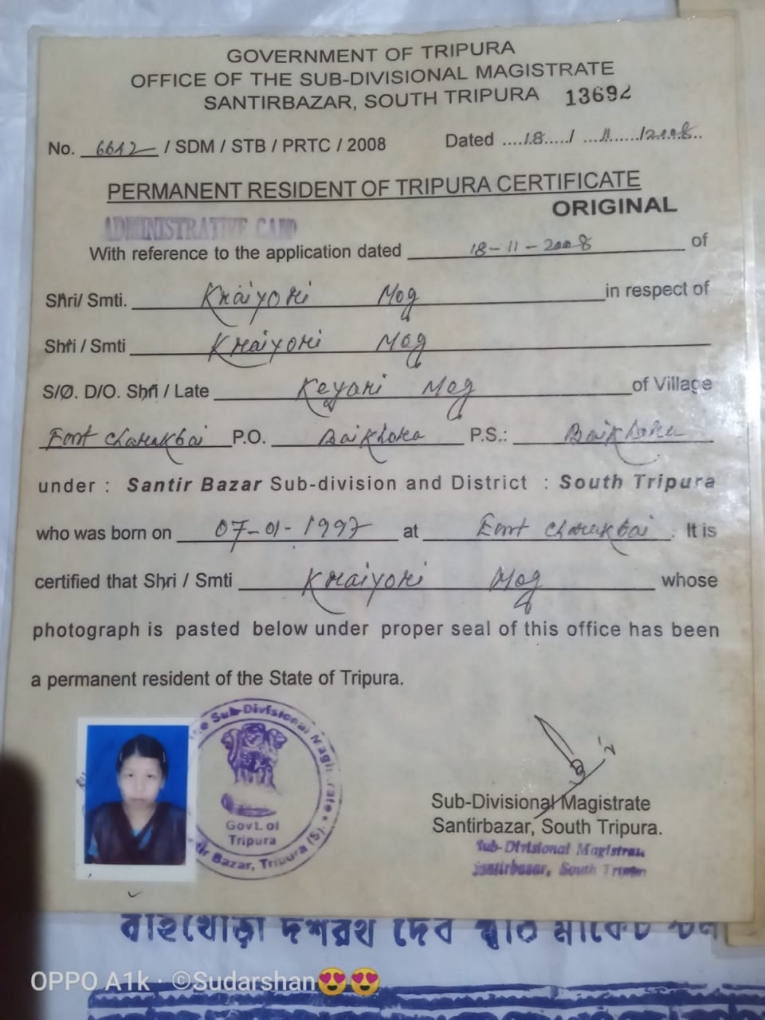 GOVERNMENT OF TRIPURA
OFFICE OF THE SUB-DIVISIONAL MAGISTRATE
SANTIRBAZAR, SOUTH TRIPURA 13692
No. 6612 / SDM / STB / PRTC / 2008 Dated ....18..../ ...11....../2008..
PERMANENT RESIDENT OF TRIPURA CERTIFICATE
ORIGINAL
ADMINISTRATIVE CAMP
With reference to the application dated 18-11-2008 of
Shri/ Smti. Khaiyori Mog in respect of
Shri / Smti Khaiyori Mog
S/O. D/O. Shri / Late Keyari Mog of Village
East Charakbai P.O. Baikhora P.S.: Baikhora
under : Santir Bazar Sub-division and District : South Tripura
who was born on 07-01-1997 at East Charakbai. It is
certified that Shri / Smti Khaiyori Mog whose
photograph is pasted below under proper seal of this office has been
a permanent resident of the State of Tripura.
Sub-Divisional Magistrate
Govt. of
Tripura
Bazar, Tripura (S)
Sub-Divisional Magistrate
Santirbazar, South Tripura.
Sub-Divisional Magistrate
Santirbazar, South Tripura
বাইখোড়া দশরথ দেব
OPPO A1k · ©Sudarshan😍😍